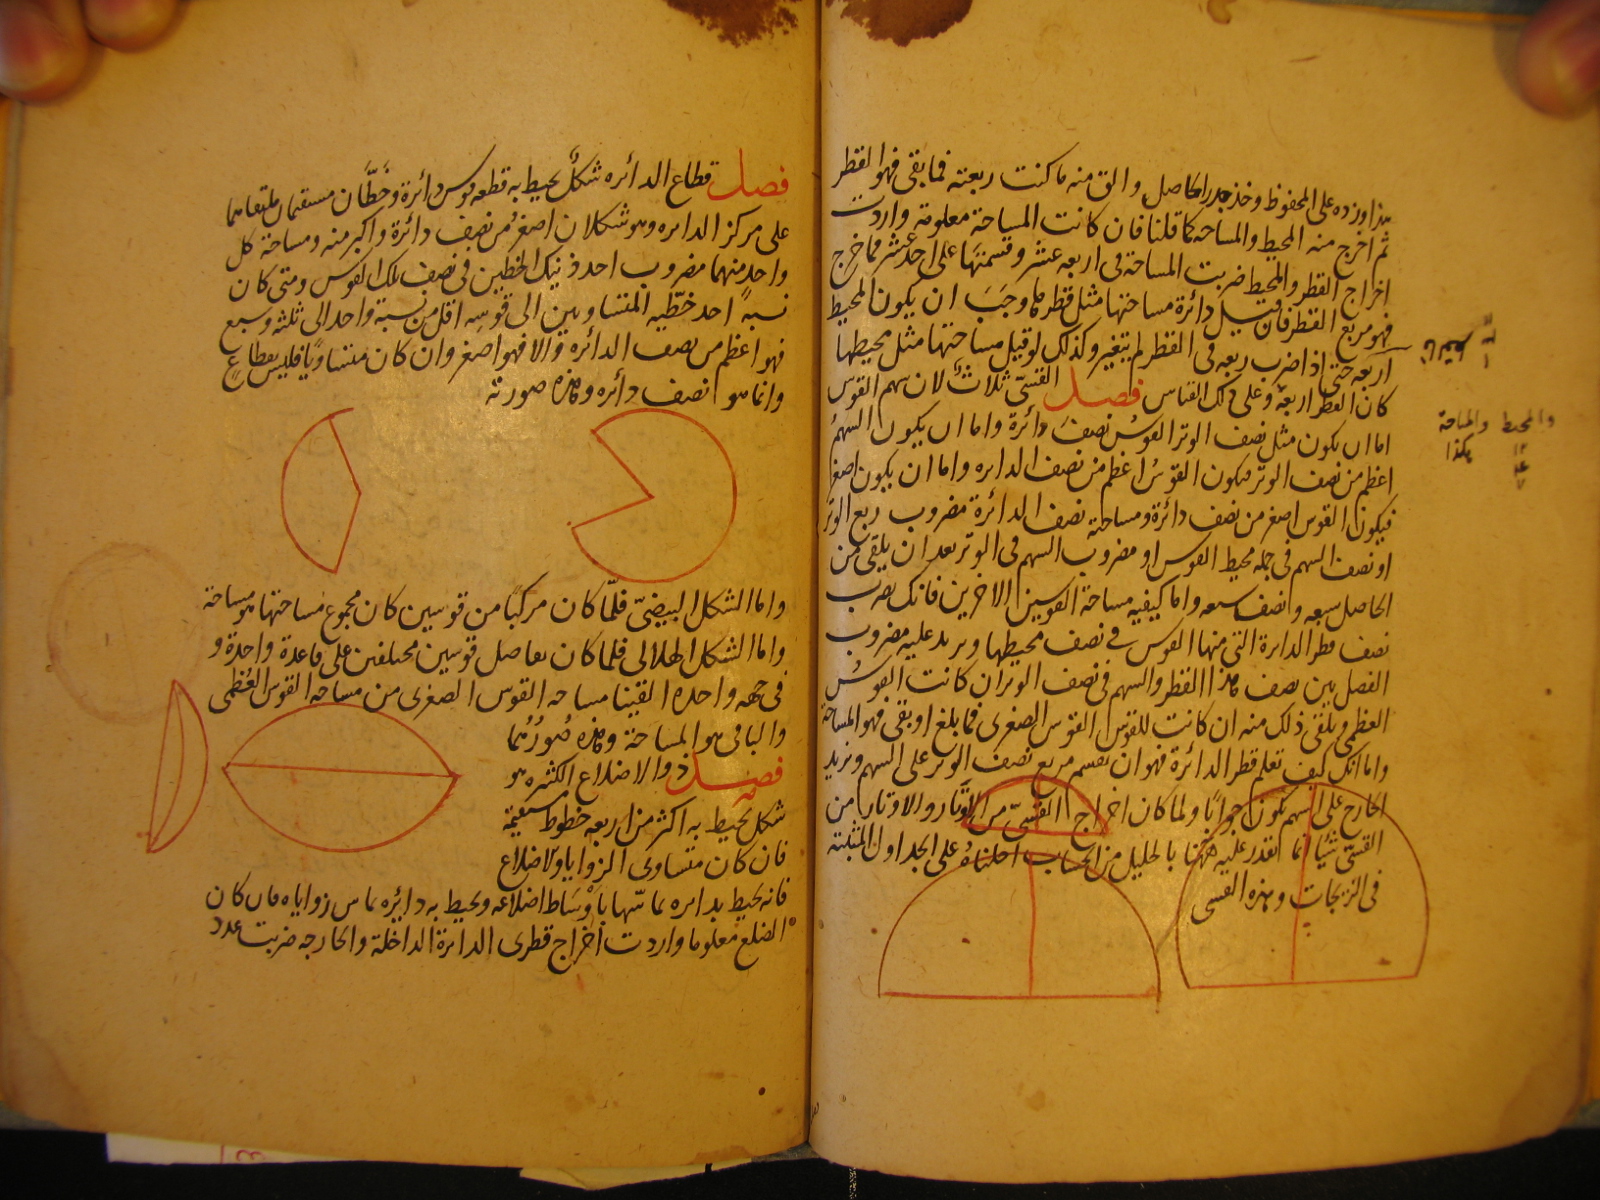 هذا وزده على المحفوظ وخذ جذر الحاصل والق منه ما كنت ربعته فما بقى فهو القطر
ثم اخرج منه المحيط والمساحه كما قلنا فان كانت المساحة معلومة واردت
اخراج القطر والمحيط ضربت المساحة فى اربعه عشر وقسمتها على احد عشر فما خرج
فهو مربع القطر فان قيل دائرة مساحتها مثل قطرها وجب ان يكون المحيط
اربعه حتى اذا ضرب ربعه فى القطر لم يتغير وكذلك لو قيل مساحتها مثل محيطها
كان القطر اربعة وعلى ذلك القياس فصل القسىّ ثلاث لان سهم القوس
اما ان يكون مثل نصف الوتر القوس نصف دائرة واما ان يكون السهم
اعظم من نصف الوتر فيكون القوس اعظم من نصف الدايره واما ان يكون اصغر
فيكون القوس اصغر من نصف دائرة ومساحته نصف الدائرة مضروب ربع الوتر
او نصف السهم فى جمله محيط القوس او مضروب السهم فى الوتر بعد ان يلقى من
الحاصل سبعه ونصف سبعه واما كيفيه مساحة القوسين الاخرين فانك تضرب
نصف قطر الدايرة التى منها القوس فى نصف محيطها ويزيد عليه مضروب
الفضل بين نصف هذا القطر والسهم فى نصف الوتر ان كانت القوس
العظمى ويلقى ذلك منه ان كانت للقوس القوس الصغرى فما بلغ او بقى فهو المساحة
واما انك كيف تعلم قطر الدائرة فهو ان تقسم مربع نصف الوتر على السهم وتزيد
الخارج على السهم يكون جوابًا ولما كان اخراج القسىّ من الاوتار والاوتار من
القسىّ شيئا انما تقدر عليه ههنا بالجليل من الحساب احلناه على الجداول المثبتة
فى الزيجات وهذه القسى
والمحيط والمساحة
هكذا
فصل قطاع الدائره شكل يحيط به قطعه قوس دائرة وخطّان مستقيمان ملتقاهما
على مركز الدايره وهو شكلان اصغر من نصف دائرة واكبر منه ومساحة كل
واحد منهما مضروب احد ذينك الخطين فى نصف تلك القوس ومتى كان
نسبة احد خطّيه المتساويين الى قوسه اقل من نسبة واحد الى ثلثه وسبع
فهو اعظم من نصف الدائره والا فهو اصغر وان كان متساويًا فليس بقطاعٍ
وانما هو نصف دائره وهذه صورته
واما الشكل البيضىّ فلمّا كان مركبًا من قوسين كان مجموع مساحتها هو مساحة
واما الشكل الهلالى فلما كان تفاضل قوسين مختلفين على قاعدة واحدة و
فى جهه واحده القينا مساحه القوس الصغرى من مساحه القوس العُظمى
والباقى هو المساحة وهذه صُورُهُما
فصل ذو الاضلاع الكثيره هو
شكل يحيط به اكثر من اربعه خطوط مستقيمة
فان كان متساوى الزوايا والاضلاع
فانه يحيط بدايره تماسّها باَوْسَاط اضلاعه ويحيط به دايره تماس زواياه فان كان
الضلع معلوما واردت اخراج قطرى الدائرة الداخلة والخارجه ضربت عدد